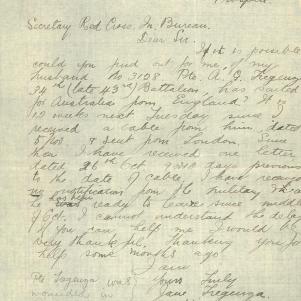 Secretary Red Cross In. Bureau.
Dear Sir.
If it is possible
could you find out for me, if my
husband No 3108 Pte. A. J. Tregenza
34th (late 43rd) Battalion, has sailed
for Australia from England? It is
12 weeks next Tuesday since I
received a cable from him dated
& sent from London. Since
then I have received no letter
dated 26th Oct. gave previous
to the date of cable. I have received
no notification from the military that
he has been ready to leave since middle
of Oct. I cannot understand the delay
If you can help me I would be
very thankful, thanking you for
help some months ago
I am
Yours Truly
Pte Tregenza was
wounded in
Jane Tregenza.